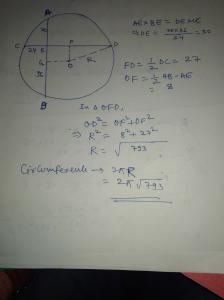 A
C 24 E F D
G
O R
B
AE×BE = DE×CE
FD = 1/2 DC = 27
OF = 1/2 AB - AE
= 8
In △OFD,
OD² = OF² + DF²
⇒ R² = 8² + 27²
R = √793
Circumference → 2πR
= 2π√793